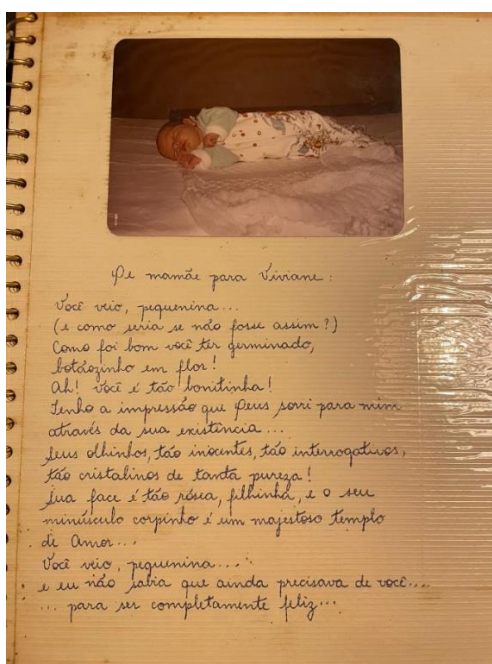 De mamãe para Viviane:
Você veio, pequenina...
(e como seria se não fosse assim?)
Como foi bom você ter germinado,
botãozinho em flor!
Ah! você é tão bonitinha!
Tenho a impressão que Deus sorri para mim
através da sua existência...
Seus olhinhos, tão inocentes, tão interrogativos,
tão cristalinos de tanta pureza!
Sua face é tão rósea, filhinha, e o seu
minúsculo corpinho é um majestoso templo
de Amor...
Você veio, pequenina...
e eu não sabia que ainda precisava de você...
... para ser completamente feliz...